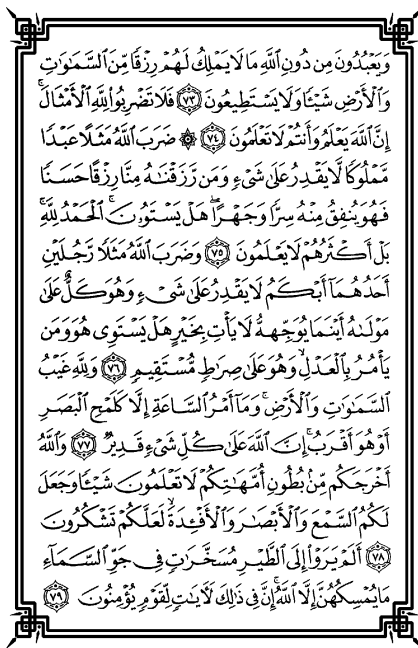 وَيَعْبُدُونَ مِن دُونِ ٱللَّهِ مَا لَا يَمْلِكُ لَهُمْ رِزْقًا مِّنَ ٱلسَّمَٰوَٰتِ
وَٱلْأَرْضِ شَيْـًٔا وَلَا يَسْتَطِيعُونَ ٧٣ فَلَا تَضْرِبُوا۟ لِلَّهِ ٱلْأَمْثَالَ ۚ
إِنَّ ٱللَّهَ يَعْلَمُ وَأَنتُمْ لَا تَعْلَمُونَ ٧٤ ۞ ضَرَبَ ٱللَّهُ مَثَلًا عَبْدًا
مَّمْلُوكًا لَّا يَقْدِرُ عَلَىٰ شَىْءٍ وَمَن رَّزَقْنَٰهُ مِنَّا رِزْقًا حَسَنًا
فَهُوَ يُنفِقُ مِنْهُ سِرًّا وَجَهْرًا ۖ هَلْ يَسْتَوُۥنَ ۚ ٱلْحَمْدُ لِلَّهِ ۚ
بَلْ أَكْثَرُهُمْ لَا يَعْلَمُونَ ٧٥ وَضَرَبَ ٱللَّهُ مَثَلًا رَّجُلَيْنِ
أَحَدُهُمَآ أَبْكَمُ لَا يَقْدِرُ عَلَىٰ شَىْءٍ وَهُوَ كَلٌّ عَلَىٰ
مَوْلَىٰهُ أَيْنَمَا يُوَجِّههُّ لَا يَأْتِ بِخَيْرٍ ۖ هَلْ يَسْتَوِى هُوَ وَمَن
يَأْمُرُ بِٱلْعَدْلِ ۙ وَهُوَ عَلَىٰ صِرَٰطٍ مُّسْتَقِيمٍ ٧٦ وَلِلَّهِ غَيْبُ
ٱلسَّمَٰوَٰتِ وَٱلْأَرْضِ ۚ وَمَآ أَمْرُ ٱلسَّاعَةِ إِلَّا كَلَمْحِ ٱلْبَصَرِ
أَوْ هُوَ أَقْرَبُ ۚ إِنَّ ٱللَّهَ عَلَىٰ كُلِّ شَىْءٍ قَدِيرٌ ٧٧ وَٱللَّهُ
أَخْرَجَكُم مِّنۢ بُطُونِ أُمَّهَٰتِكُمْ لَا تَعْلَمُونَ شَيْـًٔا وَجَعَلَ
لَكُمُ ٱلسَّمْعَ وَٱلْأَبْصَٰرَ وَٱلْأَفْـِٔدَةَ ۙ لَعَلَّكُمْ تَشْكُرُونَ
٧٨ أَلَمْ يَرَوْا۟ إِلَى ٱلطَّيْرِ مُسَخَّرَٰتٍ فِى جَوِّ ٱلسَّمَآءِ
مَا يُمْسِكُهُنَّ إِلَّا ٱللَّهُ ۗ إِنَّ فِى ذَٰلِكَ لَءَايَٰتٍ لِّقَوْمٍ يُؤْمِنُونَ ٧٩